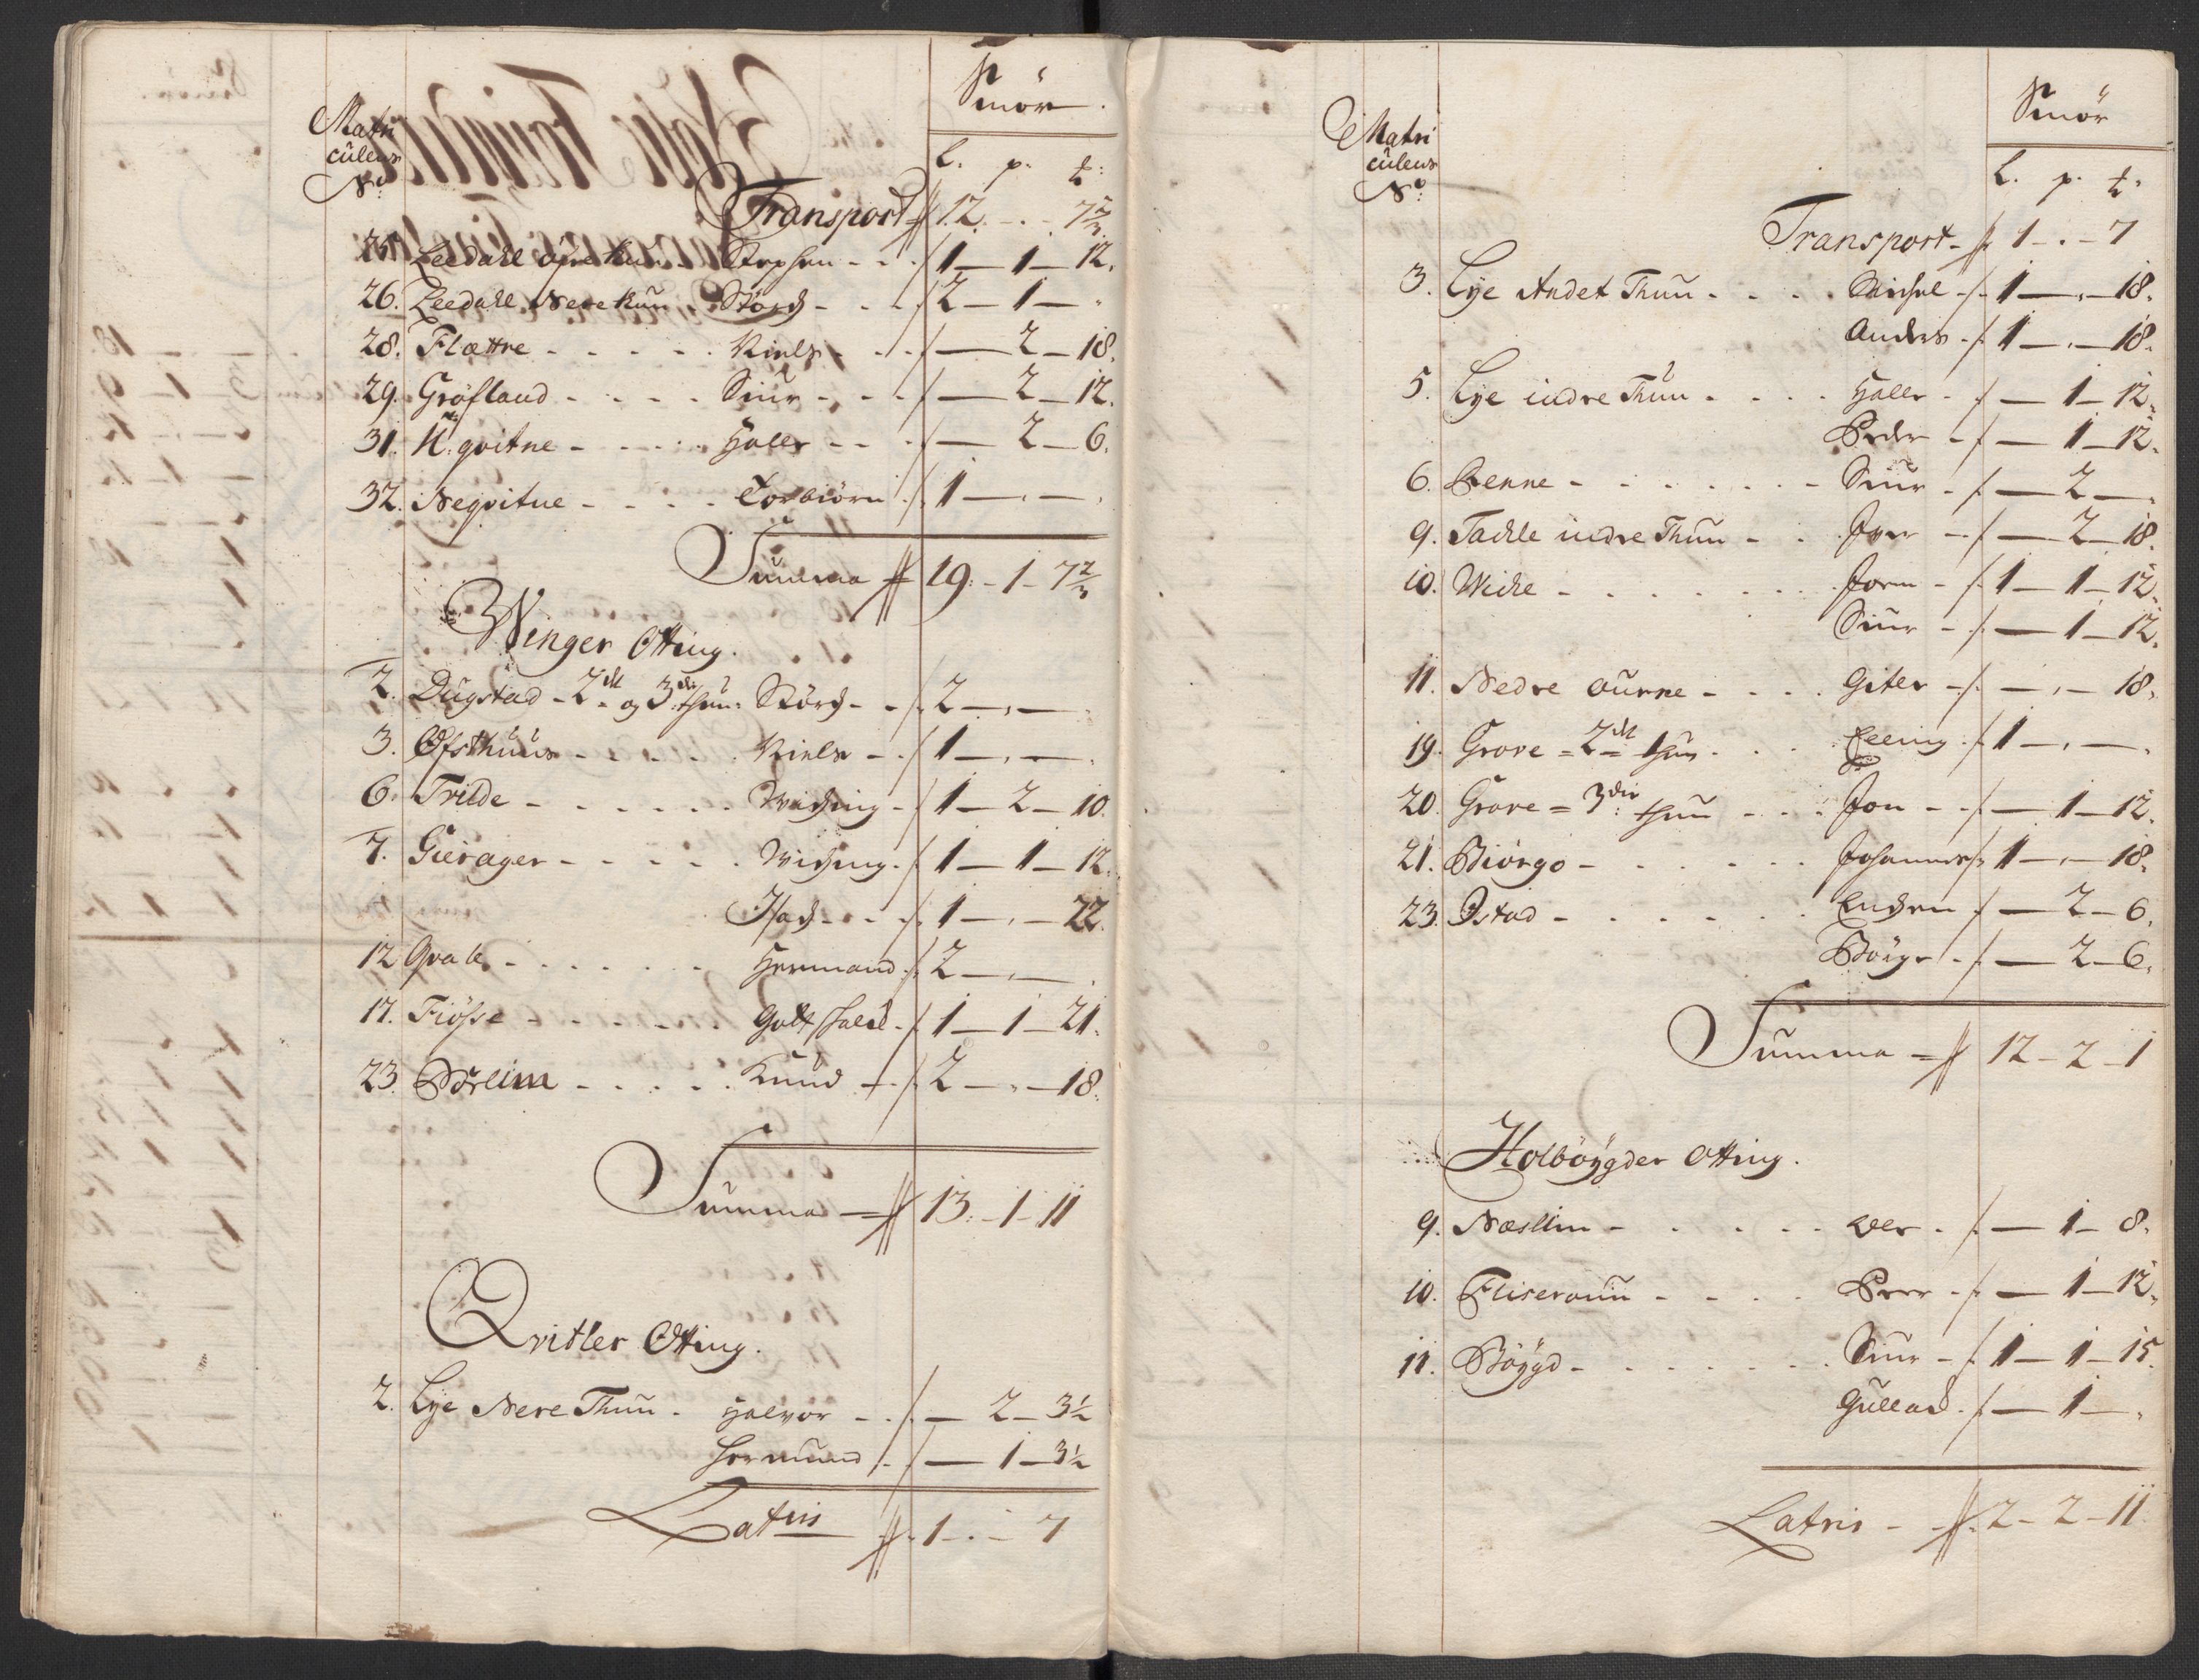 Matri
culens
No:
Smör.
L. p. ℔:
Transport 12 . - . 7 2/3
25. Leedahl öfre thun - Stephen - - 1 - 1 - 12.
26. Leedahl Nere thun - Störch - - 2 - 1 - .
28. Flættre - - - - Niels - - - 2 - 18.
29. Gröfland - - - - Siur - - - 2 - 12.
31. N: qvitne - - - - Haller - - - 2 - 6.
32. Neqvitne - - - - Torbiörn 1 - . - .
Summa 19: - 1 - 7 2/3
Winger Otting.
2. Dugstad - 2det og 3die thun: Störch - - 2 - . - .
3. Ofsthuus - - - - Niels - 1 - . - .
6. Trilde - - - - - Wiching - 1 - 2 - 10.
7. Gierager - - - - - Wiching - 1 - 1 - 12.
Isach - - - 1 - . - 22.
12 Qvale - - - - - Hermand 2 - . - .
17. Fiösse - - - - - Gutt schalck - 1 - 1 - 21.
23. Böreim - - - - - Knud - 2 - . - 18.
Summa 13: - 1 - 11
Qvitler Otting.
2. Lye Nere Thun - Halvor - - - 2 - 3 1/2
Hermund - - 1 - 3 1/2
Latris 1 - . - 7
Matri
culens
No:
Smör
L. p. ℔:
Transport - 1 - . - 7
3. Lye Andet Thun - - - Michel - 1 - . - 18.
Anders - 1 - . - 18.
5. Lye indre Thun - - - - Haller - - 1 - 12.
Peder - - 1 - 12.
6. Renne - - - - - - - Siur - - 2 - .
9. Tachle indre Thun - - Iver - - 2 - 18.
10. Wiche - - - - - - Jorm - 1 - 1 - 12.
Siur - - 1 - 12.
11. Nedre Aurne - - - - Giter - - . - 18.
19. Grove = 2det thun - - - Elling 1 - . - .
20. Grove = 3die: thun - - - Jon - - - 1 - 12.
21. Biörgo - - - - - - Johannes 1 - . - 18.
23. Istad - - - - - - Enchen - 2 - 6.
Börge - - 2 - 6.
Summa - 12 - 2 - 1
Holböygder Otting.
9. Næslim - - - - - Oler - - 1 - 8.
10. Fliseraun - - - - Peer - - 1 - 12.
11. Böygd - - - - - - Siur - 1 - 1 - 15.
Gulland - - 1 - .
Latris - 2 - 2 - 11.